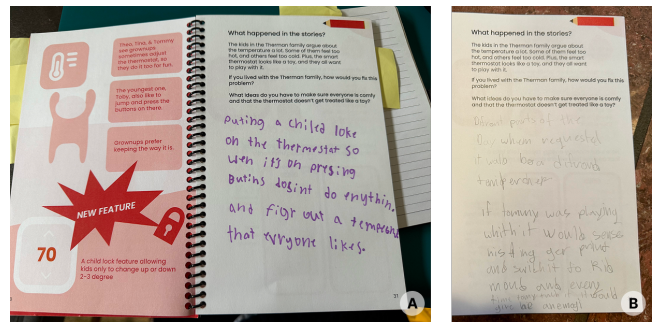 Theo, Tina, & Tommy
see grownups
sometimes adjust
the thermostat, so
they do it too for fun.
The youngest one,
Toby, also like to
jump and press the
buttons on there
Grownups prefer
keeping the way it is.
NEW FEATURE
70
A child lock feature allowing
kids only to change up or down
2-3 degree
What happened in the stories?
The kids in the Therman family argue about
the temperature a lot. Some of them feel too
hot, and others feel too cold. Plus, the smart
thermostat looks like a toy, and they all want
to play with it.
If you lived with the Therman family, how would you fix this
problem?
What ideas do you have to make sure everyone is comfy
and that the thermostat doesn't get treated like a toy?
Puting a chiled loke
on the thermostat so
wen its on presing
butins dosint do enythin.
and figr out a
that evryone likes.
37
A
What happened in the stories?
The kids in the Therman family argue about
the temperature a lot. Some of them feel too
hot, and others feel too cold. Plus, the smart
thermostat looks like a toy, and they all want
to play with it.
If you lived with the Therman family, how would you fix this
problem?
What ideas do you have to make sure everyone is comfy
and that the thermostat doesn't get treated like a toy?
parts of the
when
it
if tommy was playing
it would sense
his
and swichit to Kid
and every
it would
be
B